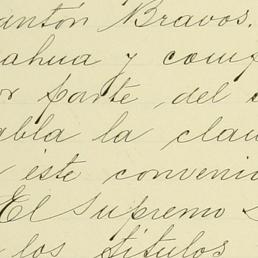 Bravos.
ahua y
por parte, del
abla la clau
este convenio
El Supremo S
los títulos